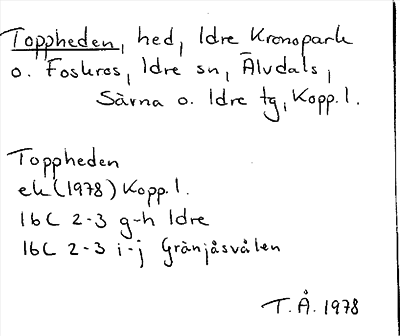 Toppheden, hed, Idre Kronopark
o. Foskros, Idre sn, Älvdals,
Särna o. Idre tg, Kopp. l.
Toppheden
ek (1978) Kopp. l.
16C 2-3 g-h Idre
16C 2-3 i-j Gränjåsvålen
T.Å. 1978